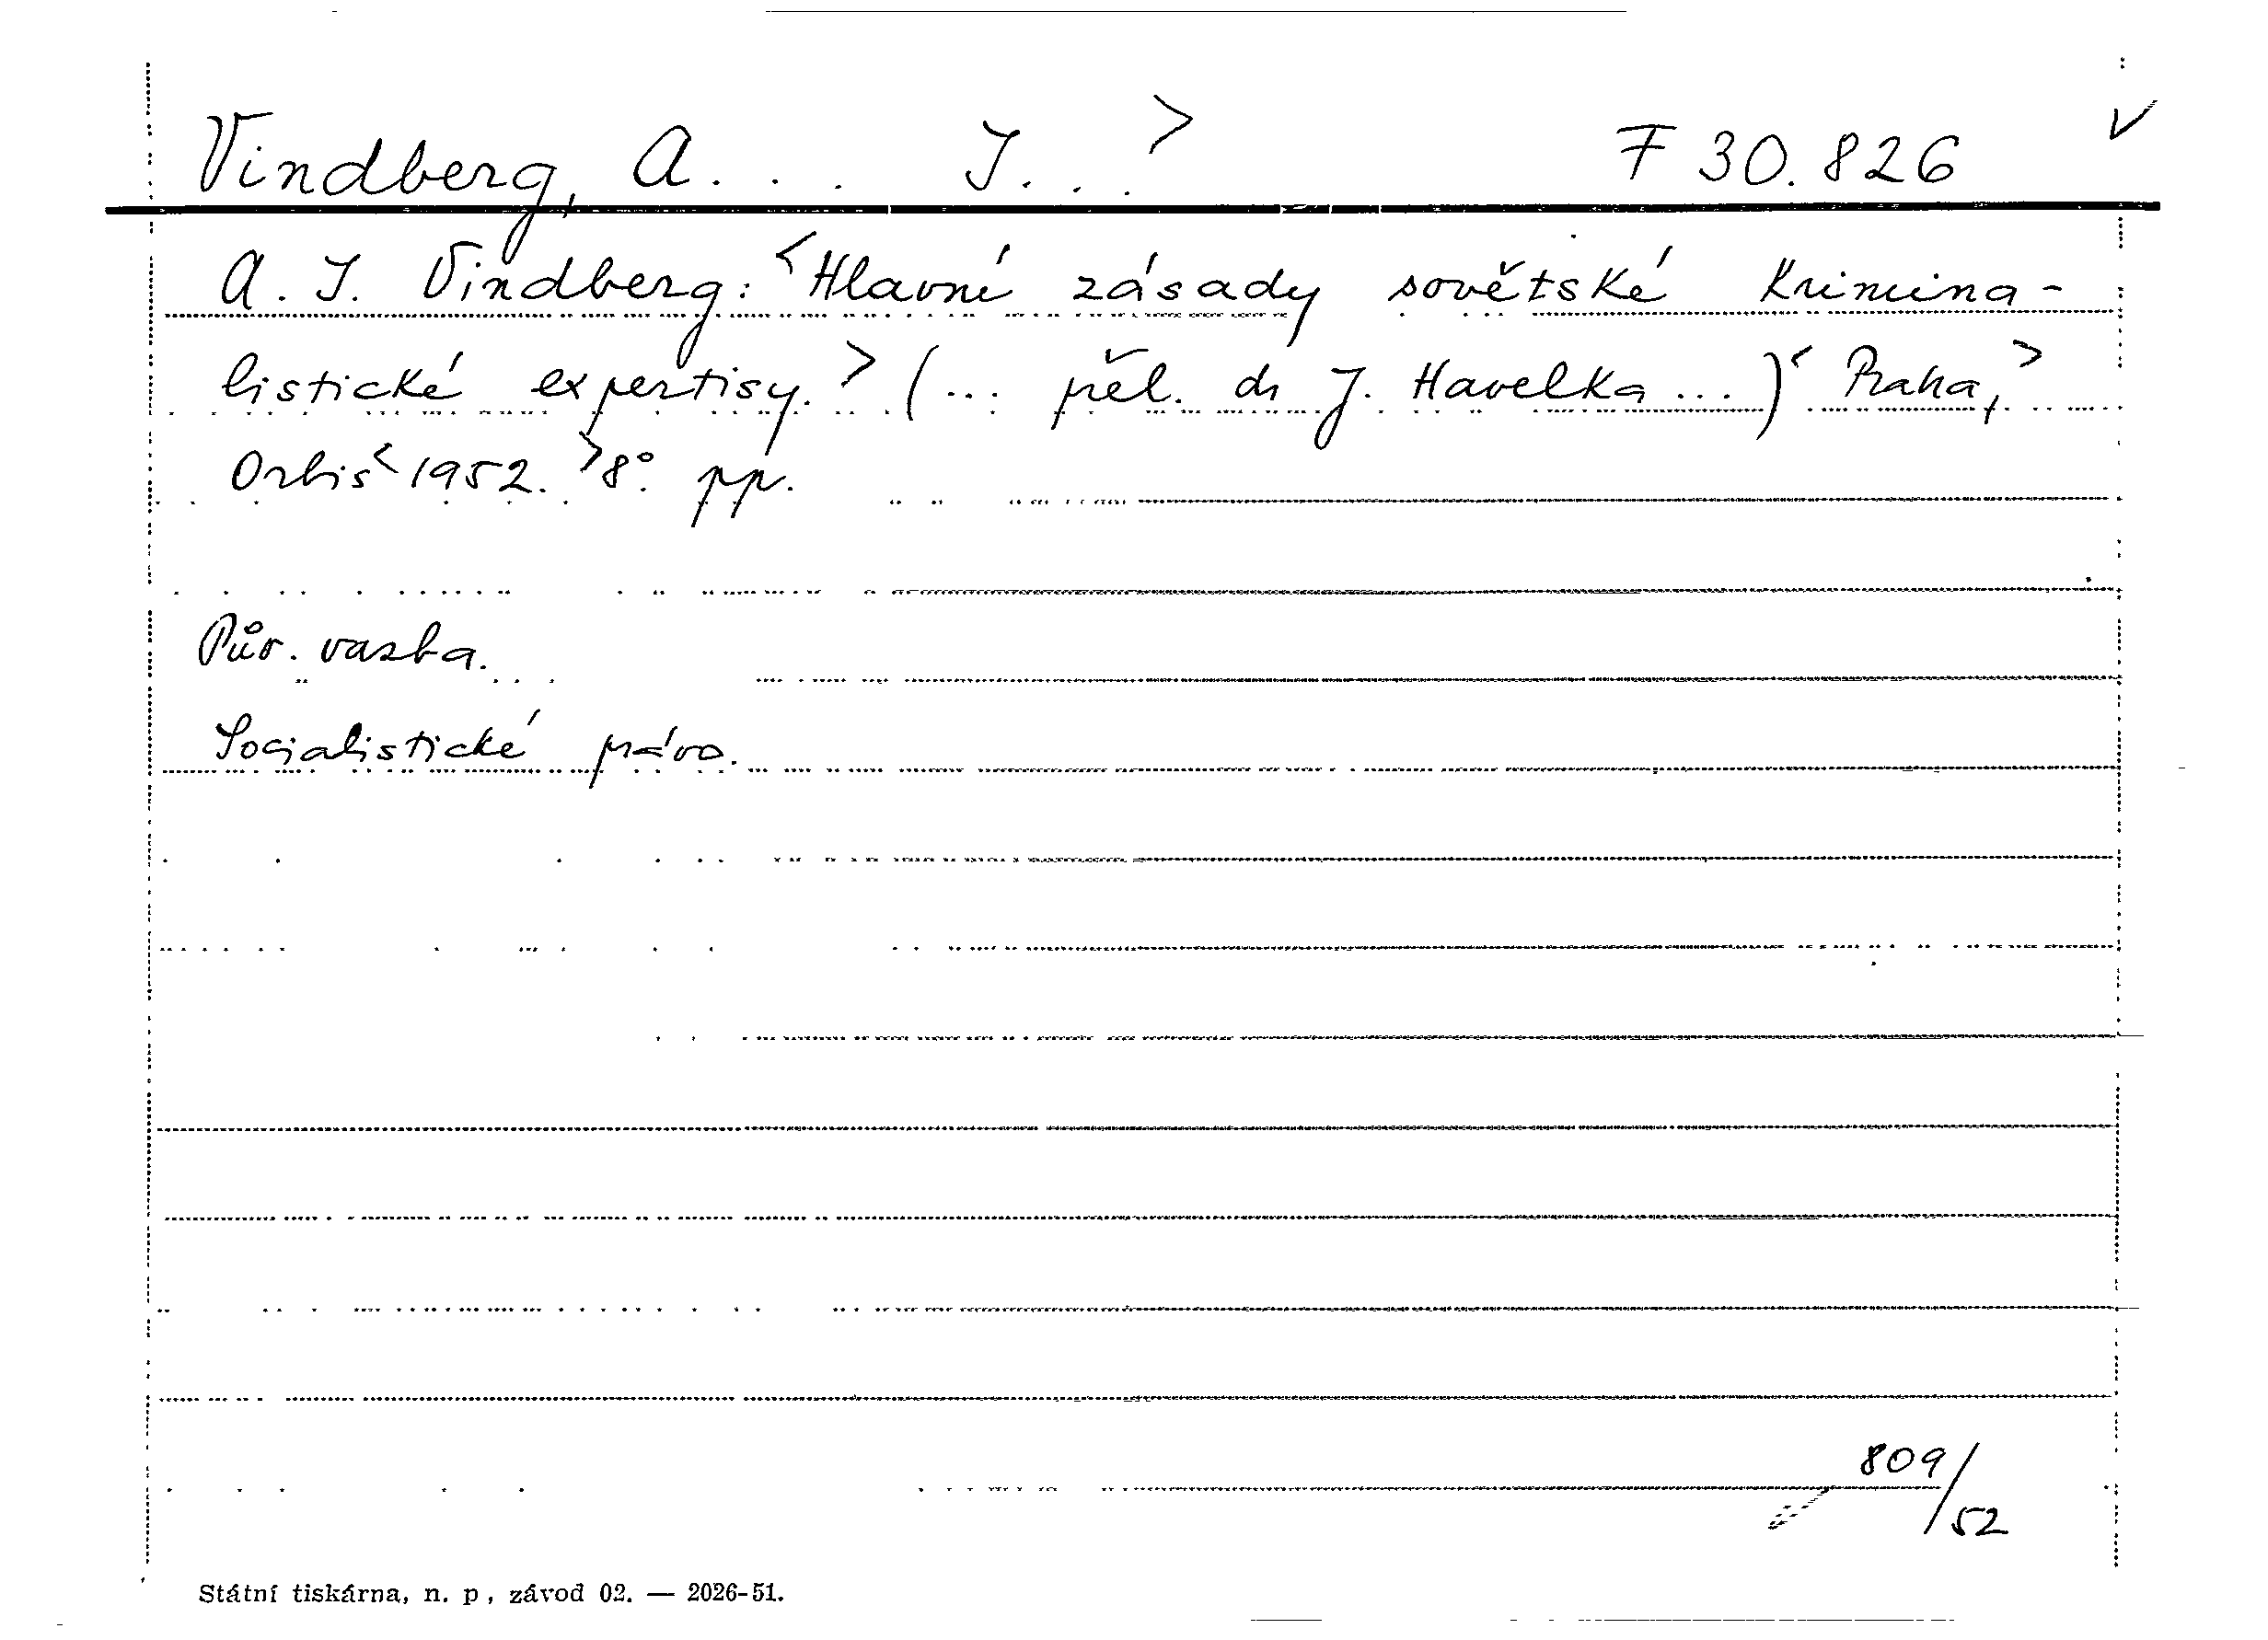 Vindberg, A... J...> F 30.826 V
A. J. Vindberg: <Hlavní zásady sovětské krimina-
listické expertisy.> (... přel. dr J. Havelka ...)< Praha,>
Orbis< 1952.> 8°. pp.
Pův. vazba.
Socialistické právo.
809/52
Státní tiskárna, n. p., závod 02. — 2026-51.